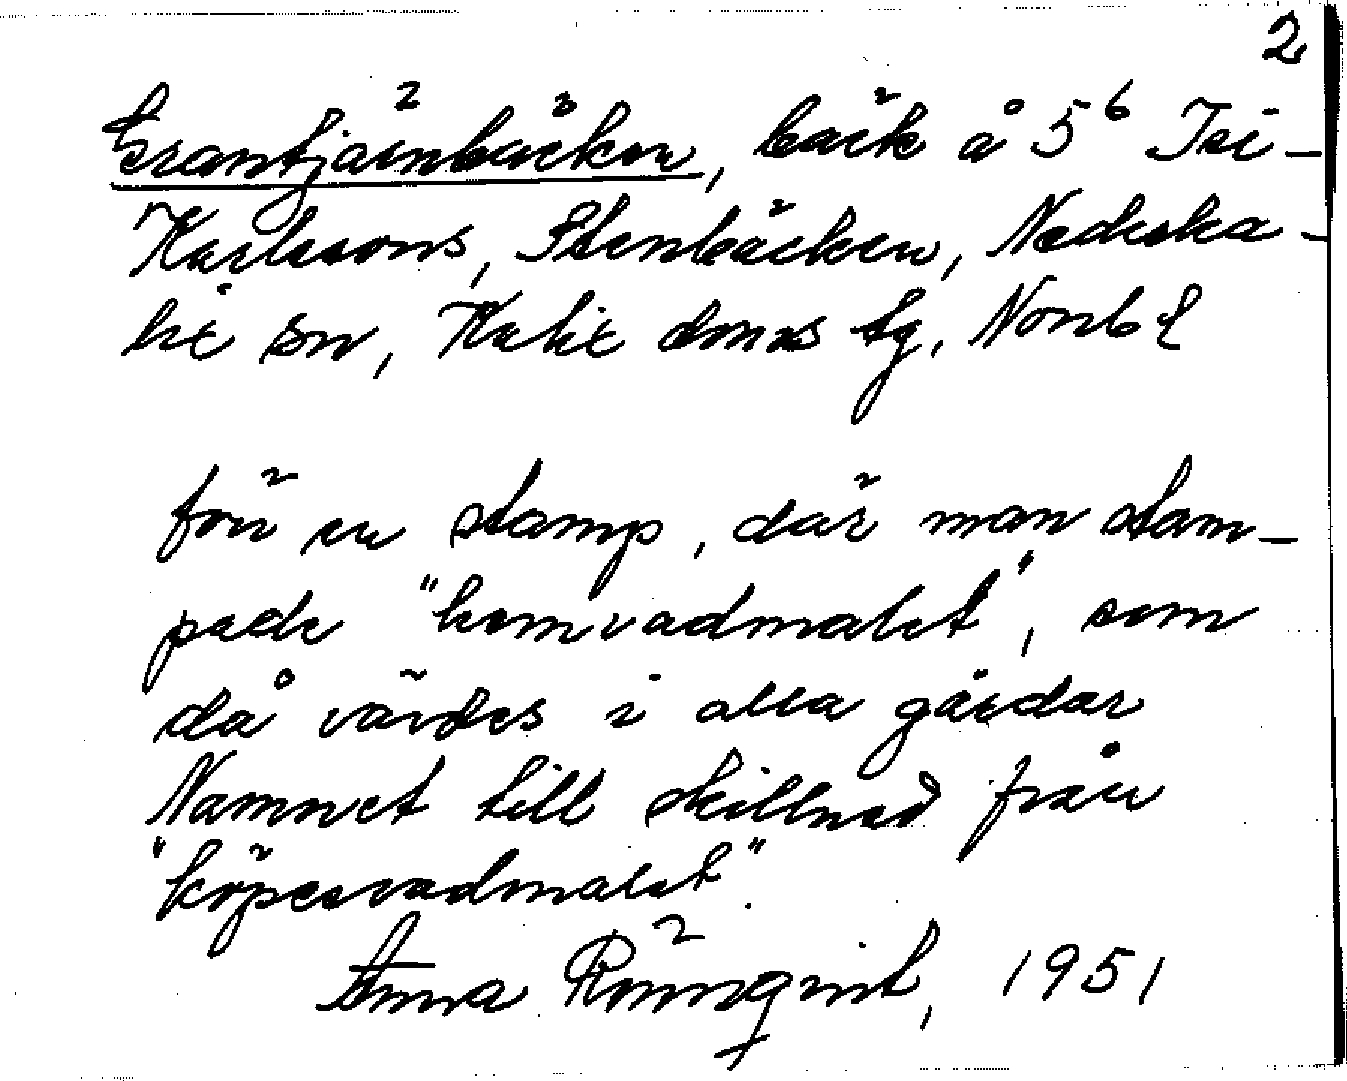 2
Grantjärnbäcken, bäck å 5⁶ Isi-
Karlssons, Stenbäcken, Nederka-
lix sn, Kalix domss tg, Norrb l
för en stamp, där man stam-
pade "hemvadmalet", som
då vävdes i alla gårdar
Namnet till skillnad från
"köpesvadmalet".
Anna Rönnqvist, 1951